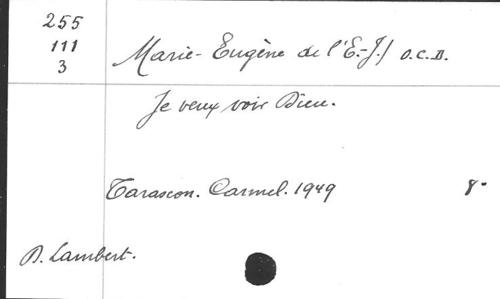 255
111
3
Marie-Eugène de l'E.-J./ O.C.D.
Je veux voir Dieu.
Tarascon. Carmel. 1949 8°
D. Lambert.